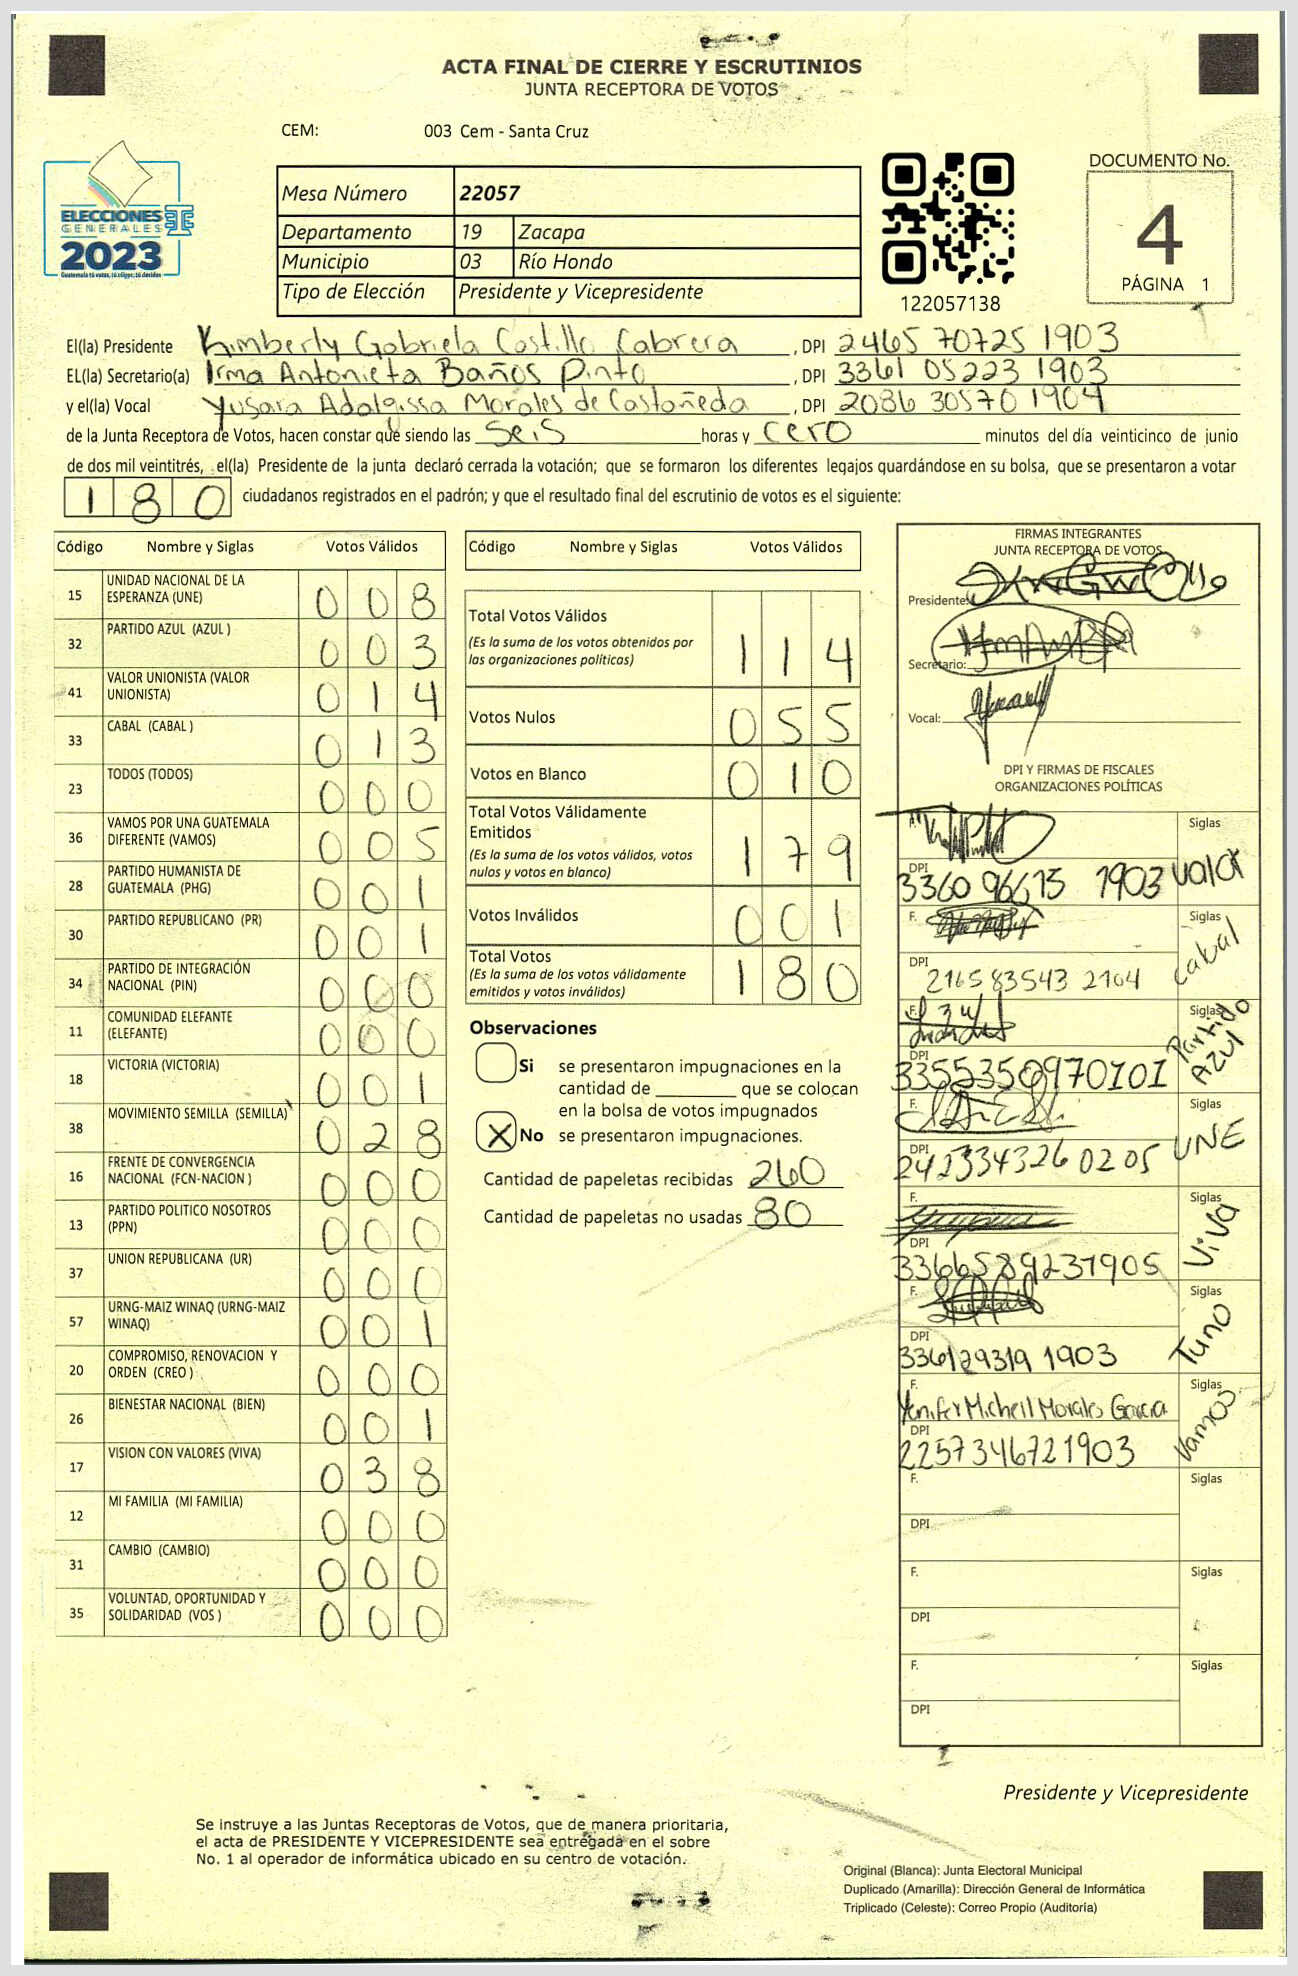 ACTA FINAL DE CIERRE Y ESCRUTINIOS
JUNTA RECEPTORA DE VOTOS
CEM: 003 Cem - Santa Cruz
ELECCIONES
GENERALES
2023
Guatemala tú votas, tú eliges, tú decides
Mesa Número 22057
Departamento 19 Zacapa
Municipio 03 Río Hondo
Tipo de Elección Presidente y Vicepresidente
122057138
DOCUMENTO No.
4
PÁGINA 1
El(la) Presidente Kimberly Gabriela Castillo Cabrera , DPI 2465 70725 1903
EL(la) Secretario(a) Irma Antonieta Baños Pinto , DPI 3361 05223 1903
y el(la) Vocal Yusara Adalgissa Morales de Castañeda , DPI 2086 30570 1904
de la Junta Receptora de Votos, hacen constar que siendo las seis horas y cero minutos del día veinticinco de junio
de dos mil veintitrés, el(la) Presidente de la junta declaró cerrada la votación; que se formaron los diferentes legajos quardándose en su bolsa, que se presentaron a votar
180 ciudadanos registrados en el padrón; y que el resultado final del escrutinio de votos es el siguiente:
Código Nombre y Siglas Votos Válidos
15 UNIDAD NACIONAL DE LA ESPERANZA (UNE) 008
32 PARTIDO AZUL (AZUL ) 003
41 VALOR UNIONISTA (VALOR UNIONISTA) 014
33 CABAL (CABAL ) 013
23 TODOS (TODOS) 000
36 VAMOS POR UNA GUATEMALA DIFERENTE (VAMOS) 005
28 PARTIDO HUMANISTA DE GUATEMALA (PHG) 001
30 PARTIDO REPUBLICANO (PR) 001
34 PARTIDO DE INTEGRACIÓN NACIONAL (PIN) 000
11 COMUNIDAD ELEFANTE (ELEFANTE) 000
18 VICTORIA (VICTORIA) 001
38 MOVIMIENTO SEMILLA (SEMILLA) 028
16 FRENTE DE CONVERGENCIA NACIONAL (FCN-NACION ) 000
13 PARTIDO POLITICO NOSOTROS (PPN) 000
37 UNION REPUBLICANA (UR) 000
57 URNG-MAIZ WINAQ (URNG-MAIZ WINAQ) 001
20 COMPROMISO, RENOVACION Y ORDEN (CREO ) 000
26 BIENESTAR NACIONAL (BIEN) 001
17 VISION CON VALORES (VIVA) 038
12 MI FAMILIA (MI FAMILIA) 000
31 CAMBIO (CAMBIO) 000
35 VOLUNTAD, OPORTUNIDAD Y SOLIDARIDAD (VOS ) 000
Código Nombre y Siglas Votos Válidos
Total Votos Válidos 114
(Es la suma de los votos obtenidos por
las organizaciones políticas)
Votos Nulos 055
Votos en Blanco 010
Total Votos Válidamente
Emitidos 179
(Es la suma de los votos válidos, votos
nulos y votos en blanco)
Votos Inválidos 001
Total Votos 180
(Es la suma de los votos válidamente
emitidos y votos inválidos)
Observaciones
Si se presentaron impugnaciones en la
cantidad de que se colocan
en la bolsa de votos impugnados
X No se presentaron impugnaciones.
Cantidad de papeletas recibidas 260
Cantidad de papeletas no usadas 80
FIRMAS INTEGRANTES
JUNTA RECEPTORA DE VOTOS
Presidente:
Secretario:
Vocal:
DPI Y FIRMAS DE FISCALES
ORGANIZACIONES POLÍTICAS
F. Siglas
DPI 3360 96615 1903 Valor
F. Siglas
DPI 2165 83543 2104 Cabal
F. Siglas
DPI 3355350970101 Partido AZUL
F. Siglas
DPI 242334326 0205 UNE
F. Siglas
DPI 3366589231905 Viva
F. Siglas
DPI 336129319 1903 Tuno
F. Yenifer Michell Morales Garcia Siglas
DPI 2257346721903 Vamos
F. Siglas
DPI
F. Siglas
DPI
F. Siglas
DPI
Presidente y Vicepresidente
Se instruye a las Juntas Receptoras de Votos, que de manera prioritaria,
el acta de PRESIDENTE Y VICEPRESIDENTE sea entregada en el sobre
No. 1 al operador de informática ubicado en su centro de votación.
Original (Blanca): Junta Electoral Municipal
Duplicado (Amarilla): Dirección General de Informática
Triplicado (Celeste): Correo Propio (Auditoría)